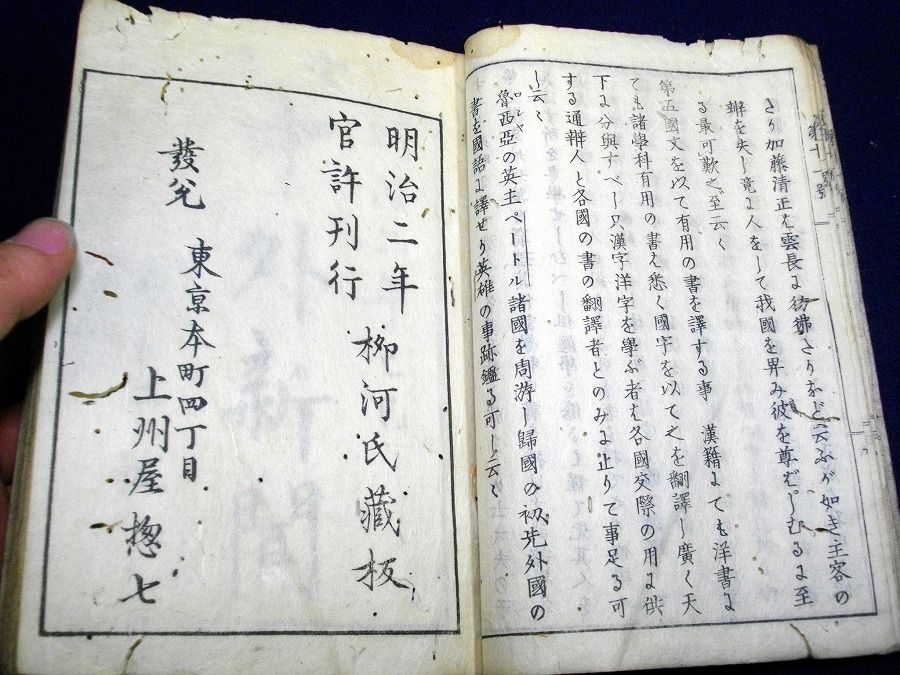 さり加藤清正を雲長に彷彿さりなど云ふが如き主客の
辨を失し竟に人をして我國を昇み彼を尊ばしむるに至
る最可歎之至云〱
第五國文を以て有用の書を譯する事 漢籍にても洋書に
ても諸學科有用の書を悉く國字を以て之を翻譯し廣く天
下に分與すべし只漢字洋字を學ぶ者を各國交際の用に供
する通辨人と各國の書の翻譯者とのみに止りて事足る可
し云〱
魯西亞の英主ペートル諸國を周游し歸國の初先外國の
ロシヤ
書を國語に譯せり英雄の事跡鑑る可し云〱
明治二年
官許刊行
柳河氏藏板
發兌
東京本町四丁目
上州屋惣七